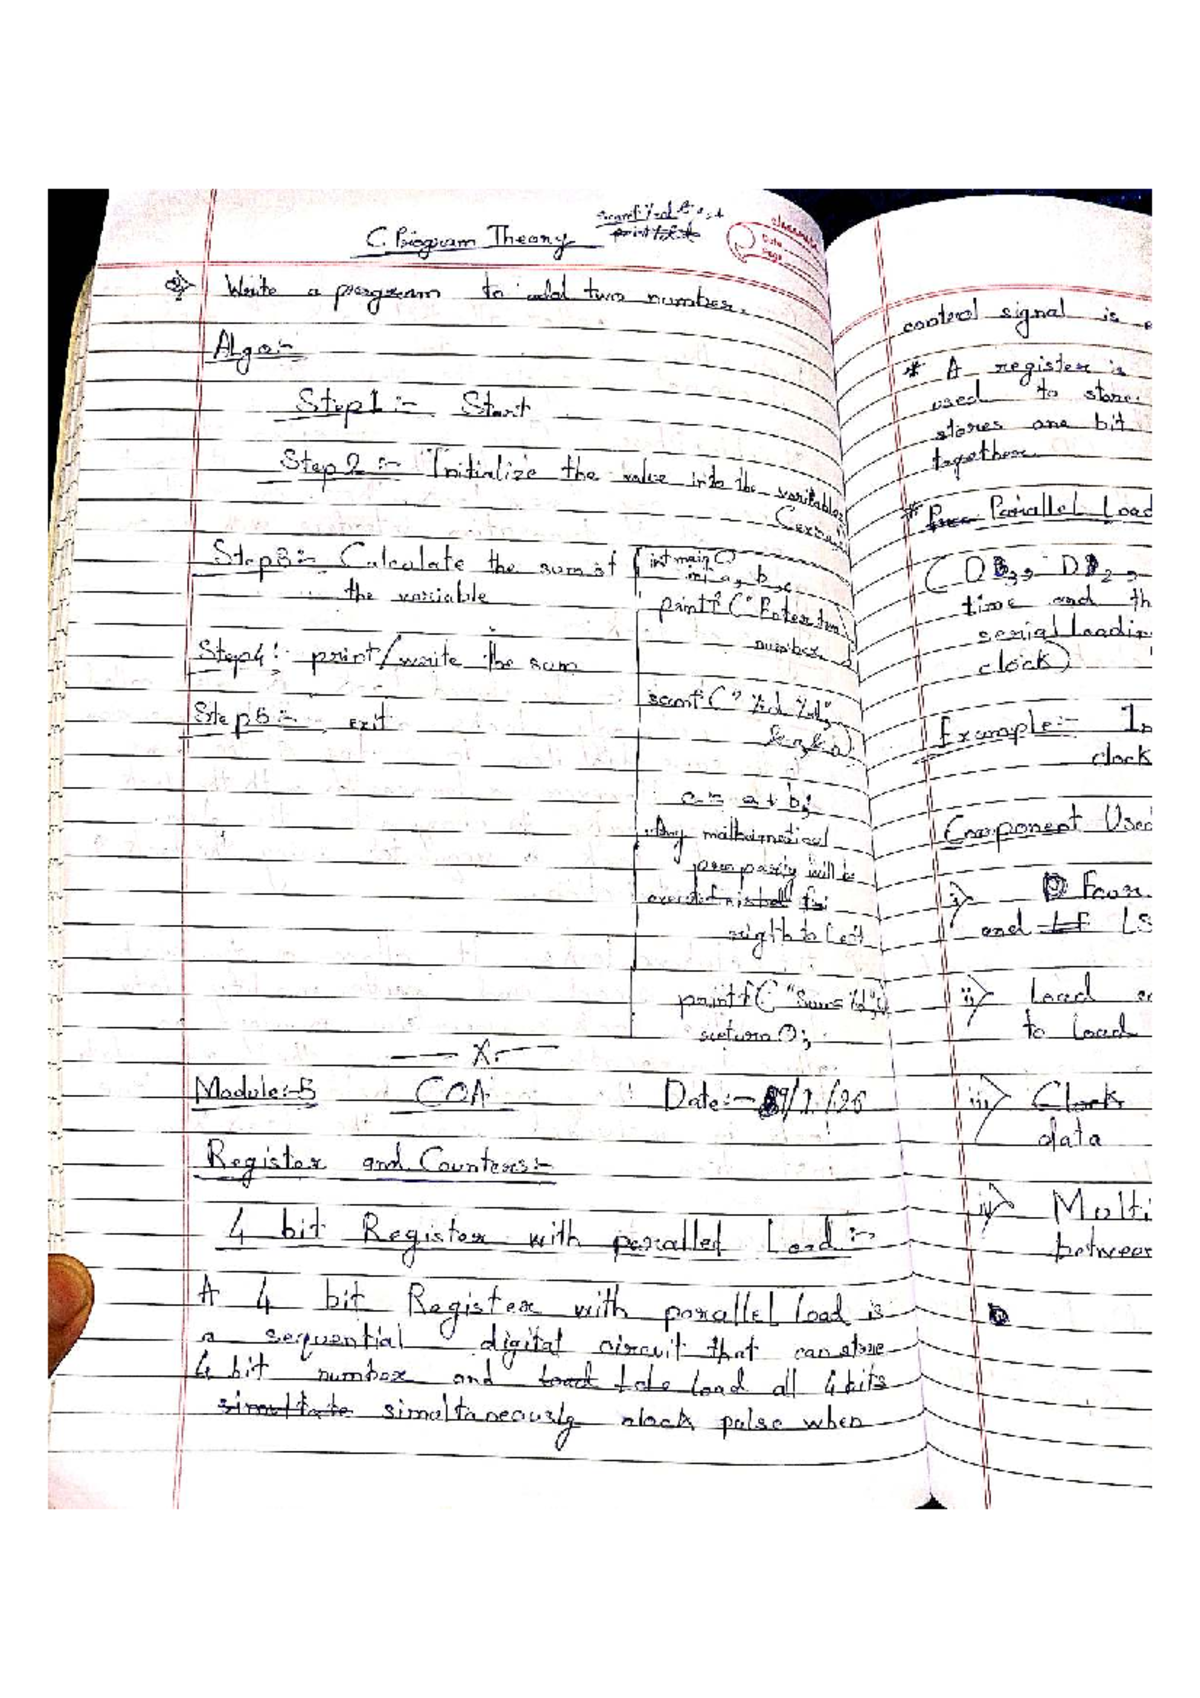 C. Program Theory
Write a program to add two number.
Algo:-
Step1:- Start
Step2:- Initialize the value into the varitables
Step3:- Calculate the sum of
the variable
Step4:- print/write the sum
Step5:- exit
int main()
int a, b, c
printf("Enter two
number
scanf("%d %d",
c = a + b;
Any mathematical
will be
rigth to left
printf("Sum=%d",c)
return 0;
— X —
Module:-5 COA Date:- /26
Register and Counters:-
4 bit Register with parallel Load:-
A 4 bit Register with parallel load is
a sequential digital circuit that can store
4 bit number and load all 4 bits
simultaneously clock pulse when
control signal is
* A register is
used to store
stores one bit
together.
* Parallel Load
time and th
serial loadin
clock)
Example:- In
clock
Component Used
i> Four
and LS
ii> Load
to load
iii> Clock
data
iv> Multi
between